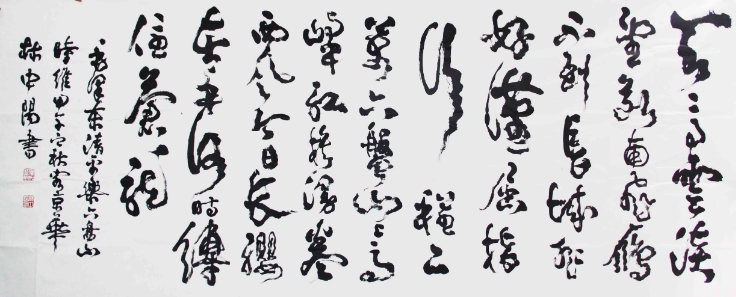 天高雲淡
望斷南飛雁
不到長城非
好漢屈指
行程二
萬六盤山上高
峯紅旗漫卷
西風今日長纓
在手何時縛
住蒼龍
毛澤東清平樂六盤山
時維甲午之秋客京華
林陽書